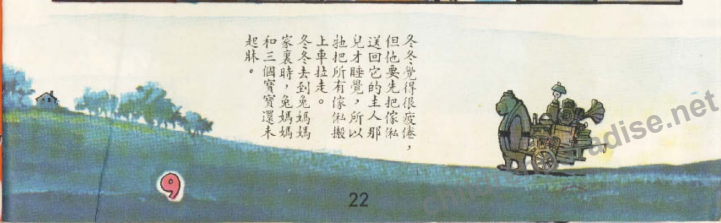 冬冬覺得很疲倦，
但他要先把傢俬
送回它的主人那
兒才睡覺，所以
牠把所有傢俬搬
上車拉走。
冬冬去到兔媽媽
家裏時，兔媽媽
和三個寶寶還未
起牀。
9
22